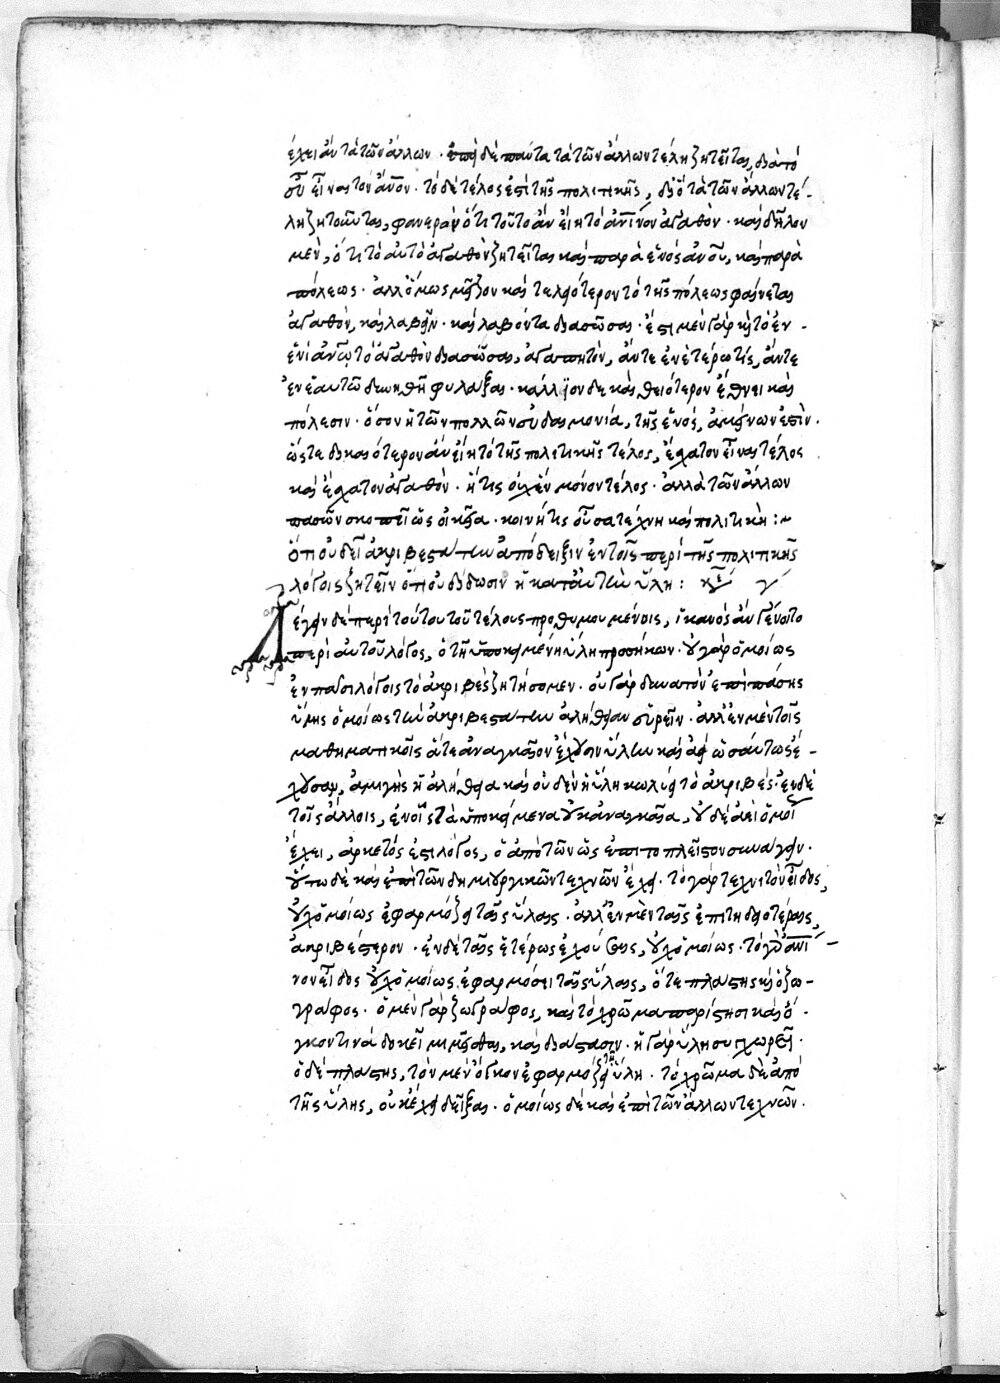 ἔχει ἂν τὰ τῶν ἄλλων · ἐπεὶ δὲ πάντα τὰ τῶν ἄλλων τέλη ζητεῖται, διὰ τὸ
εὖ εἶναι τὸν ἄνον · τὸ δὲ τέλος ἐπὶ τῆς πολιτικῆς, δι' ὃ τὰ τῶν ἄλλων τέ-
λη ζητοῦνται, φανερὸν ὅτι τοῦτο ἂν εἴη τὸ ἀνινον ἀγαθὸν · καὶ δῆλον
μὲν, ὅτι τὸ αὐτὸ ἀγαθὸν ζητεῖται καὶ παρὰ ἑνὸς ἀνου, καὶ παρὰ
πόλεως · ἀλλ' ὅμως μεῖζον καὶ τελειότερον τὸ τῆς πόλεως φαίνεται
ἀγαθὸν, καὶ λαβεῖν · καὶ λαβόντα διασῶσαι · ἔστι μὲν γὰρ καὶ τὸ ἐν -
ἑνὶ ἀνω τὸ ἀγαθὸν διασῶσαι, ἀγαπητὸν, ἄντε ἐν ἑτέρω τίς, ἄντε
ἐν ἑαυτῶ δυνηθῆ φυλάξαι · κάλλιον δὲ καὶ θειότερον ἔθνει καὶ
πόλεσιν · ὅσον ἡ τῶν πολλῶν εὐδαιμονία, τῆς ἑνός, ἀμείνων ἐστὶν ·
ὥστε δικαιότερον ἂν εἴη τὸ τῆς πολιτικῆς τέλος, ἔσχατον εἶναι τέλος
καὶ ἔσχατον ἀγαθὸν · ἥτις οὐχ ἓν μόνον τέλος · ἀλλὰ τῶν ἄλλων
πασῶν σκοπεῖ ὡς οἰκεῖα · κοινή τις οὖσα τέχνη καὶ πολιτική :~
Ὅτι οὐ δεῖ ἀκριβεστάτην ἀπόδειξιν ἐν τοῖς περὶ τῆς πολιτικῆς
λόγοις ζητεῖν ὅτι οὐ δίδωσιν ἡ κατ' αὐτὴν ὕλη : κε γ
Λέγειν δὲ περὶ τούτου τοῦ τέλους προθυμουμένοις, ἱκανὸς ἂν γένοιτο
περὶ αὐτοῦ λόγος, ὁ τῆ ὑποκειμένη ὕλη προσήκων · οὐ γὰρ ὁμοίως
ἐν πᾶσι λόγοις τὸ ἀκριβὲς ζητήσομεν · οὐ γὰρ δυνατὸν ἐπὶ πάσης
ὕλης ὁμοίως τὴν ἀκριβεστάτην ἀλήθειαν εὑρεῖν · ἀλλ' ἐν μὲν τοῖς
μαθηματικοῖς ἅτε ἀναγκαῖον ἔχουσιν ὕλην καὶ ἀεὶ ὡσαύτως ἔ -
χουσαν, ἀμιγὴς ἡ ἀλήθεια καὶ οὐδὲν ἡ ὕλη κωλύει τὸ ἀκριβές · ἐν δὲ
τοῖς ἄλλοις, ἐν οἷς τὰ ὑποκείμενα οὐκ ἀναγκαῖα, οὐδὲ ἀεὶ ὁμοί
ἔχει, ἀρκετός ἐστι λόγος, ὁ ἀπὸ τῶν ὡς ἐπὶ τὸ πλεῖστον συνάγειν ·
οὕτω δὲ καὶ ἐπὶ τῶν δημιουργικῶν τεχνῶν ἔχει · τὸ γὰρ τεχνιτὸν εἶδος,
οὐχ' ὁμοίως ἐφαρμόζει ταῖς ὕλαις · ἀλλ' ἐν μὲν ταῖς ἐπιτηδειοτέραις,
ἀκριβέστερον · ἐν δὲ ταῖς ἑτέρως ἐχούσαις, οὐχ' ὁμοίως · τὸ γὰρ ἀνί -
νον εἶδος οὐχ' ὁμοίως ἐφαρμόσει ταῖς ὕλαις, ὅ τε πλάστης καὶ ὁ ζω -
γράφος · ὁ μὲν γὰρ ζωγράφος, καὶ τὸ χρῶμα παρίστησι καὶ ὄ -
γκον τινὰ δοκεῖ μιμεῖσθαι, καὶ διάστασιν · ἡ γὰρ ὕλη συγχωρεῖ ·
ὁ δὲ πλάστης, τὸν μὲν ὄγκον ἐφαρμόζει τῆ ὕλη · τὸ χρῶμα δὲ ἀπὸ
τῆς ὕλης, οὐκ ἔχει δεῖξαι · ὁμοίως δὲ καὶ ἐπὶ τῶν ἄλλων τεχνῶν ·